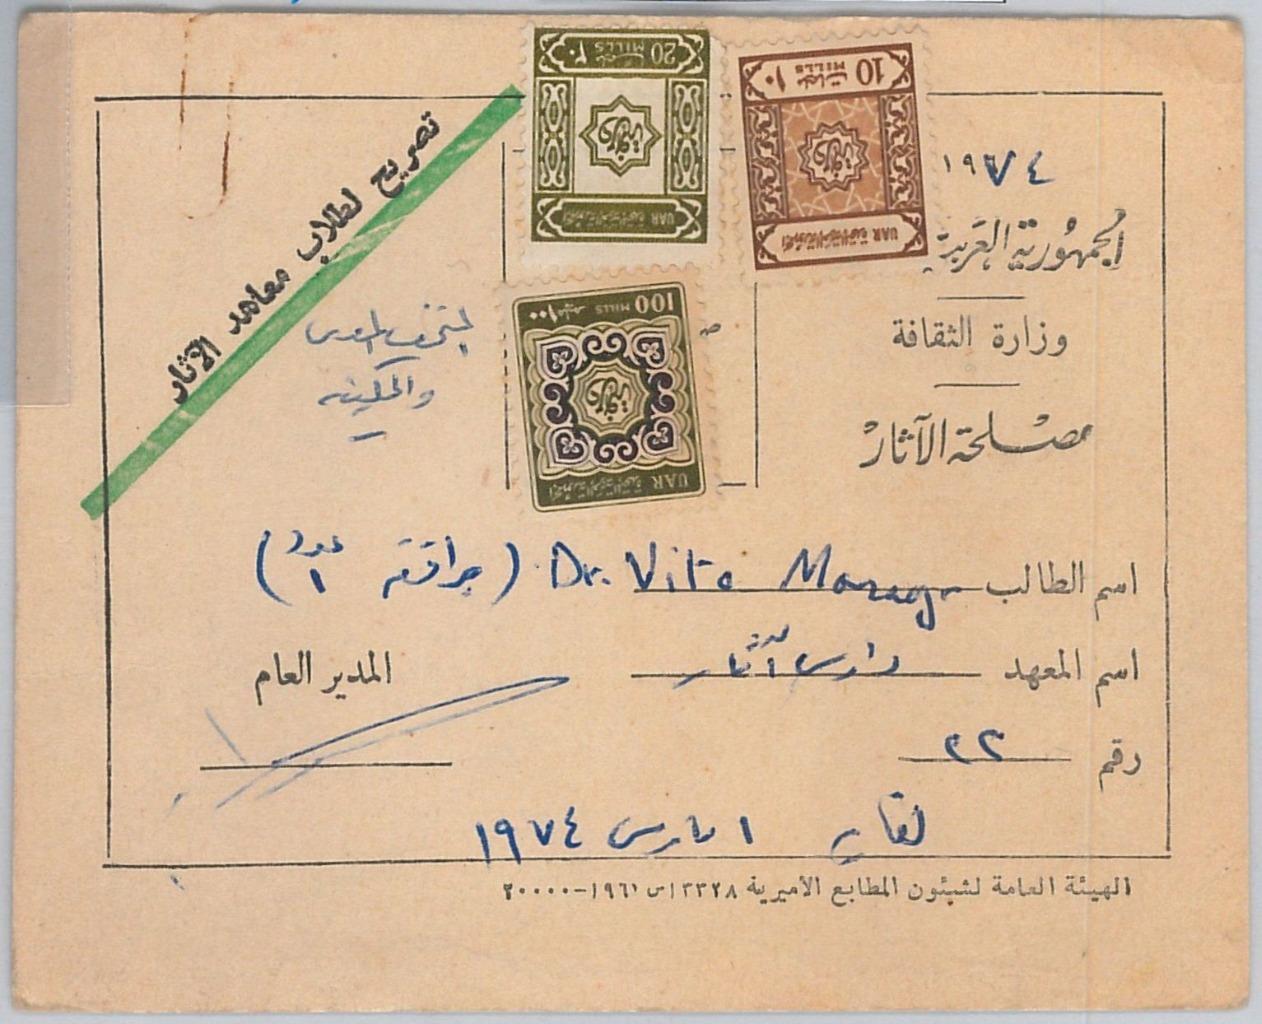 ١٩٧٤
الجمهورية العربية
وزارة الثقافة
مصلحة الآثار
تصريح لطلاب معاهد الآثار
20 MILLS ٢٠
UAR
10 MILLS ١٠
UAR
100 MILLS ١٠٠
UAR
المتحف المصرى
اسم الطالب Dr. Vito (
اسم المعهد دارس آثار
المدير العام
رقم ٢٢
لغاية ١ مارس ١٩٧٤
الهيئة العامة لشئون المطابع الأميرية ١٣٣٢٨س ١٩٦١-٢٠٠٠٠